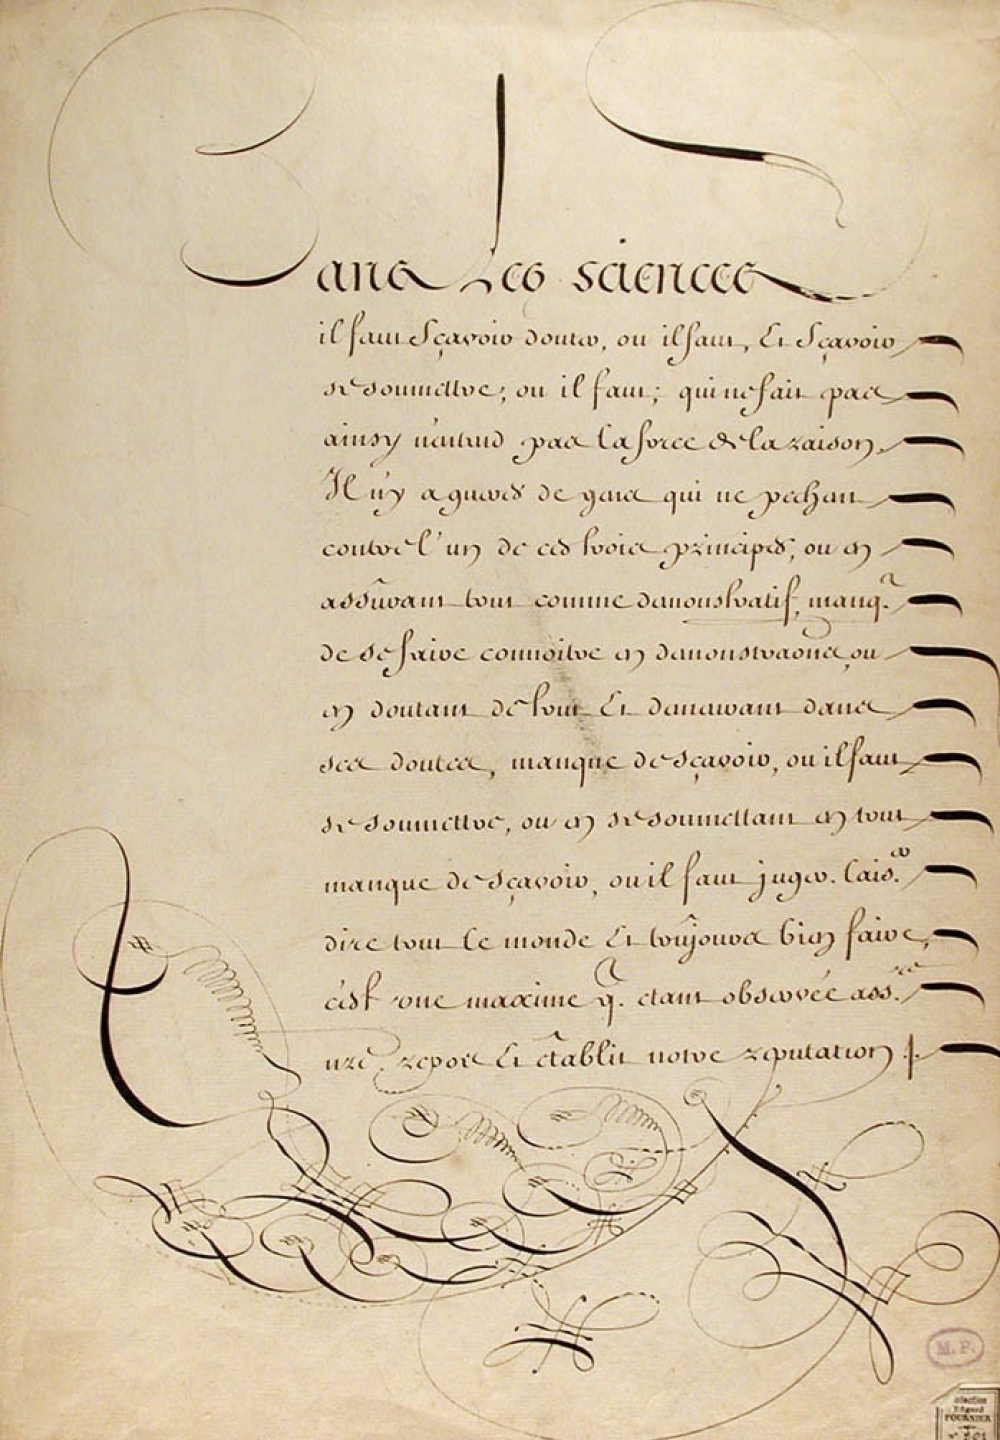 Dans Les sciences
il faut Sçavoir douter, ou il faut, Et Sçavoir
se soumettre; ou il faut; qui ne fait pas
ainsy n'entend pas la force de la raison.
Il n'y a gueres de gens qui ne pechent
contre l'un de ces trois principes, ou en
assûrant tout comme demonstratif, manq.e
de se faire connoitre en demonstraons, ou
en doutant de tout Et demeurant dans
ses doutes, manque de sçavoir, ou il faut
se soumettre, ou en se soumettant en tout
manque de sçavoir, ou il faut juger. Laiss.er
dire tout le monde Et toûjours bien faire,
c'est une maxime q. etant observée ass.re
nre repos Et êtablit notre reputation
M.F.
ollection
Edgard
FOURNIER